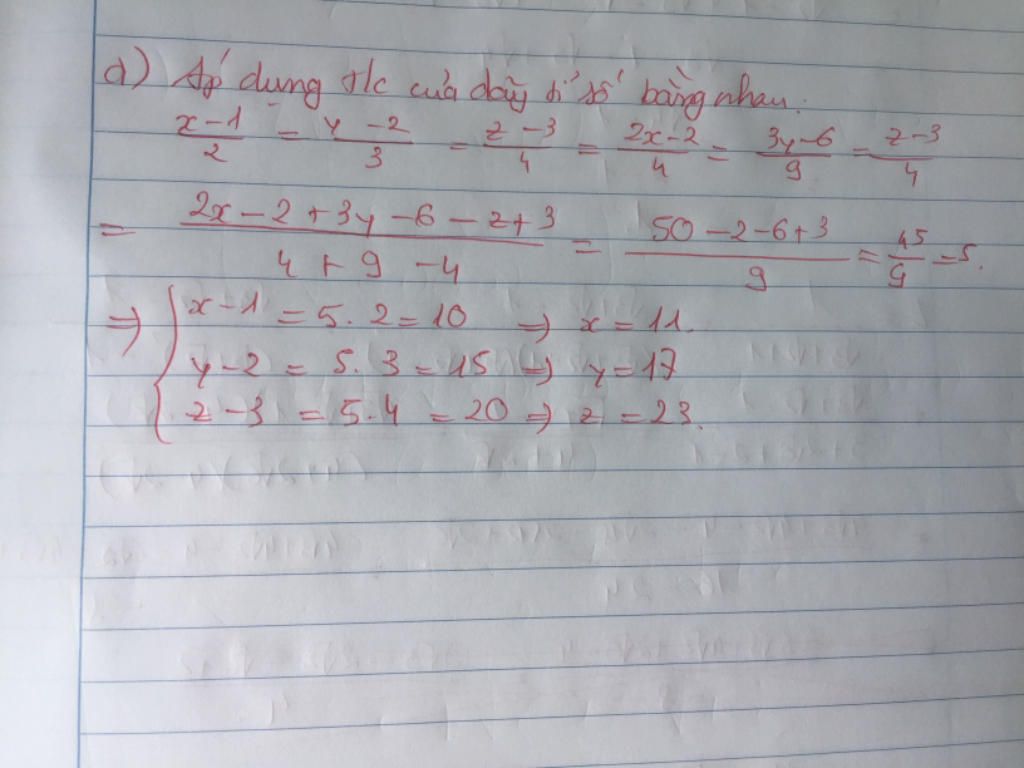 d) Áp dụng t/c của dãy tỉ số bằng nhau.
x-1/2 = y-2/3 = z-3/4 = 2x-2/4 = 3y-6/9 = z-3/4
= 2x-2+3y-6-z+3/4+9-4 = 50-2-6+3/9 = 45/9 = 5.
=> { x-1 = 5.2 = 10 => x = 11.
y-2 = 5.3 = 15 => y = 17
z-3 = 5.4 = 20 => z = 23.